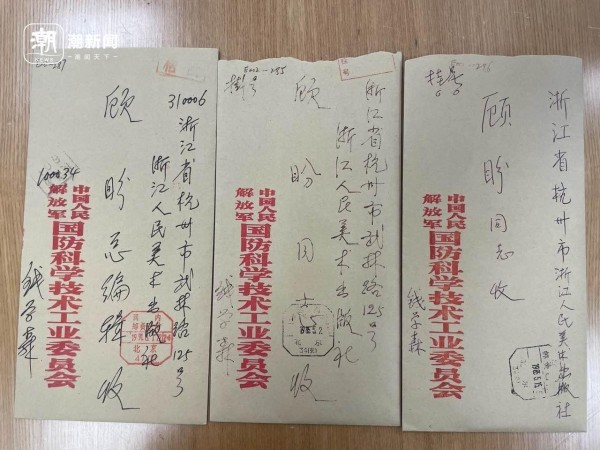 潮 潮新闻
NEWS
310006
浙江省杭州市武林路125号
浙江人民美术出版社
顾盼总编辑 收
100034
中国人民
解放军
国防科学技术工业委员会
钱学森
挂号
浙江省杭州市武林路125号
浙江人民美术出版社
顾盼同志 收
中国人民
解放军
国防科学技术工业委员会
钱学森
北京
挂号
浙江省杭州市浙江人民美术出版社
顾盼同志收
中国人民
解放军
国防科学技术工业委员会
钱学森